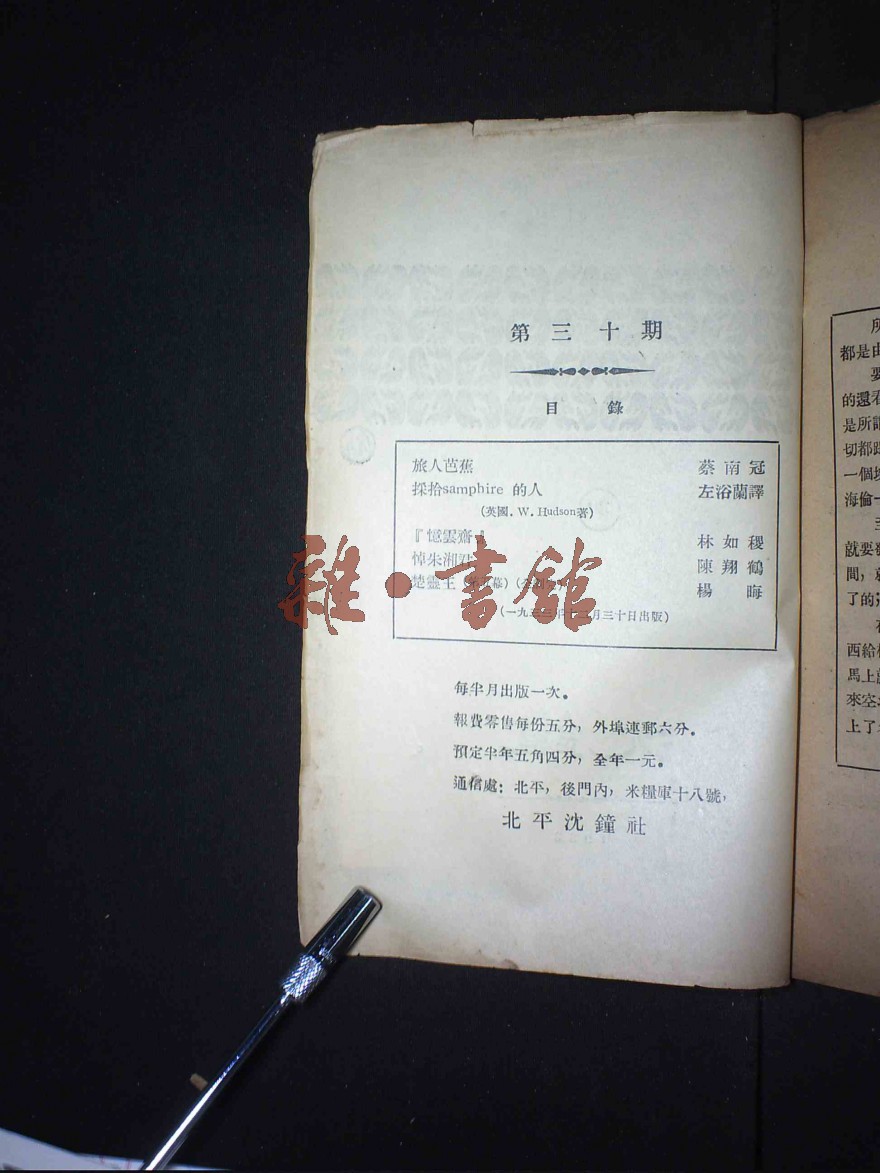 第三十期
目錄
旅人芭蕉 蔡南冠
採拾samphire 的人 左浴蘭譯
(英國. W. Hudson著)
『憶雲齋』 林如稷
悼朱湘君 陳翔鶴
楚靈王 楊晦
月三十日出版)
每半月出版一次。
報費零售每份五分，外埠連郵六分。
預定半年五角四分，全年一元。
通信處：北平，後門內，米糧庫十八號，
北平沈鐘社
雜·書館
都是由
的還看
是所謂
切都
一個
海倫
就要
間，
了的
西給
馬上
來空
上了